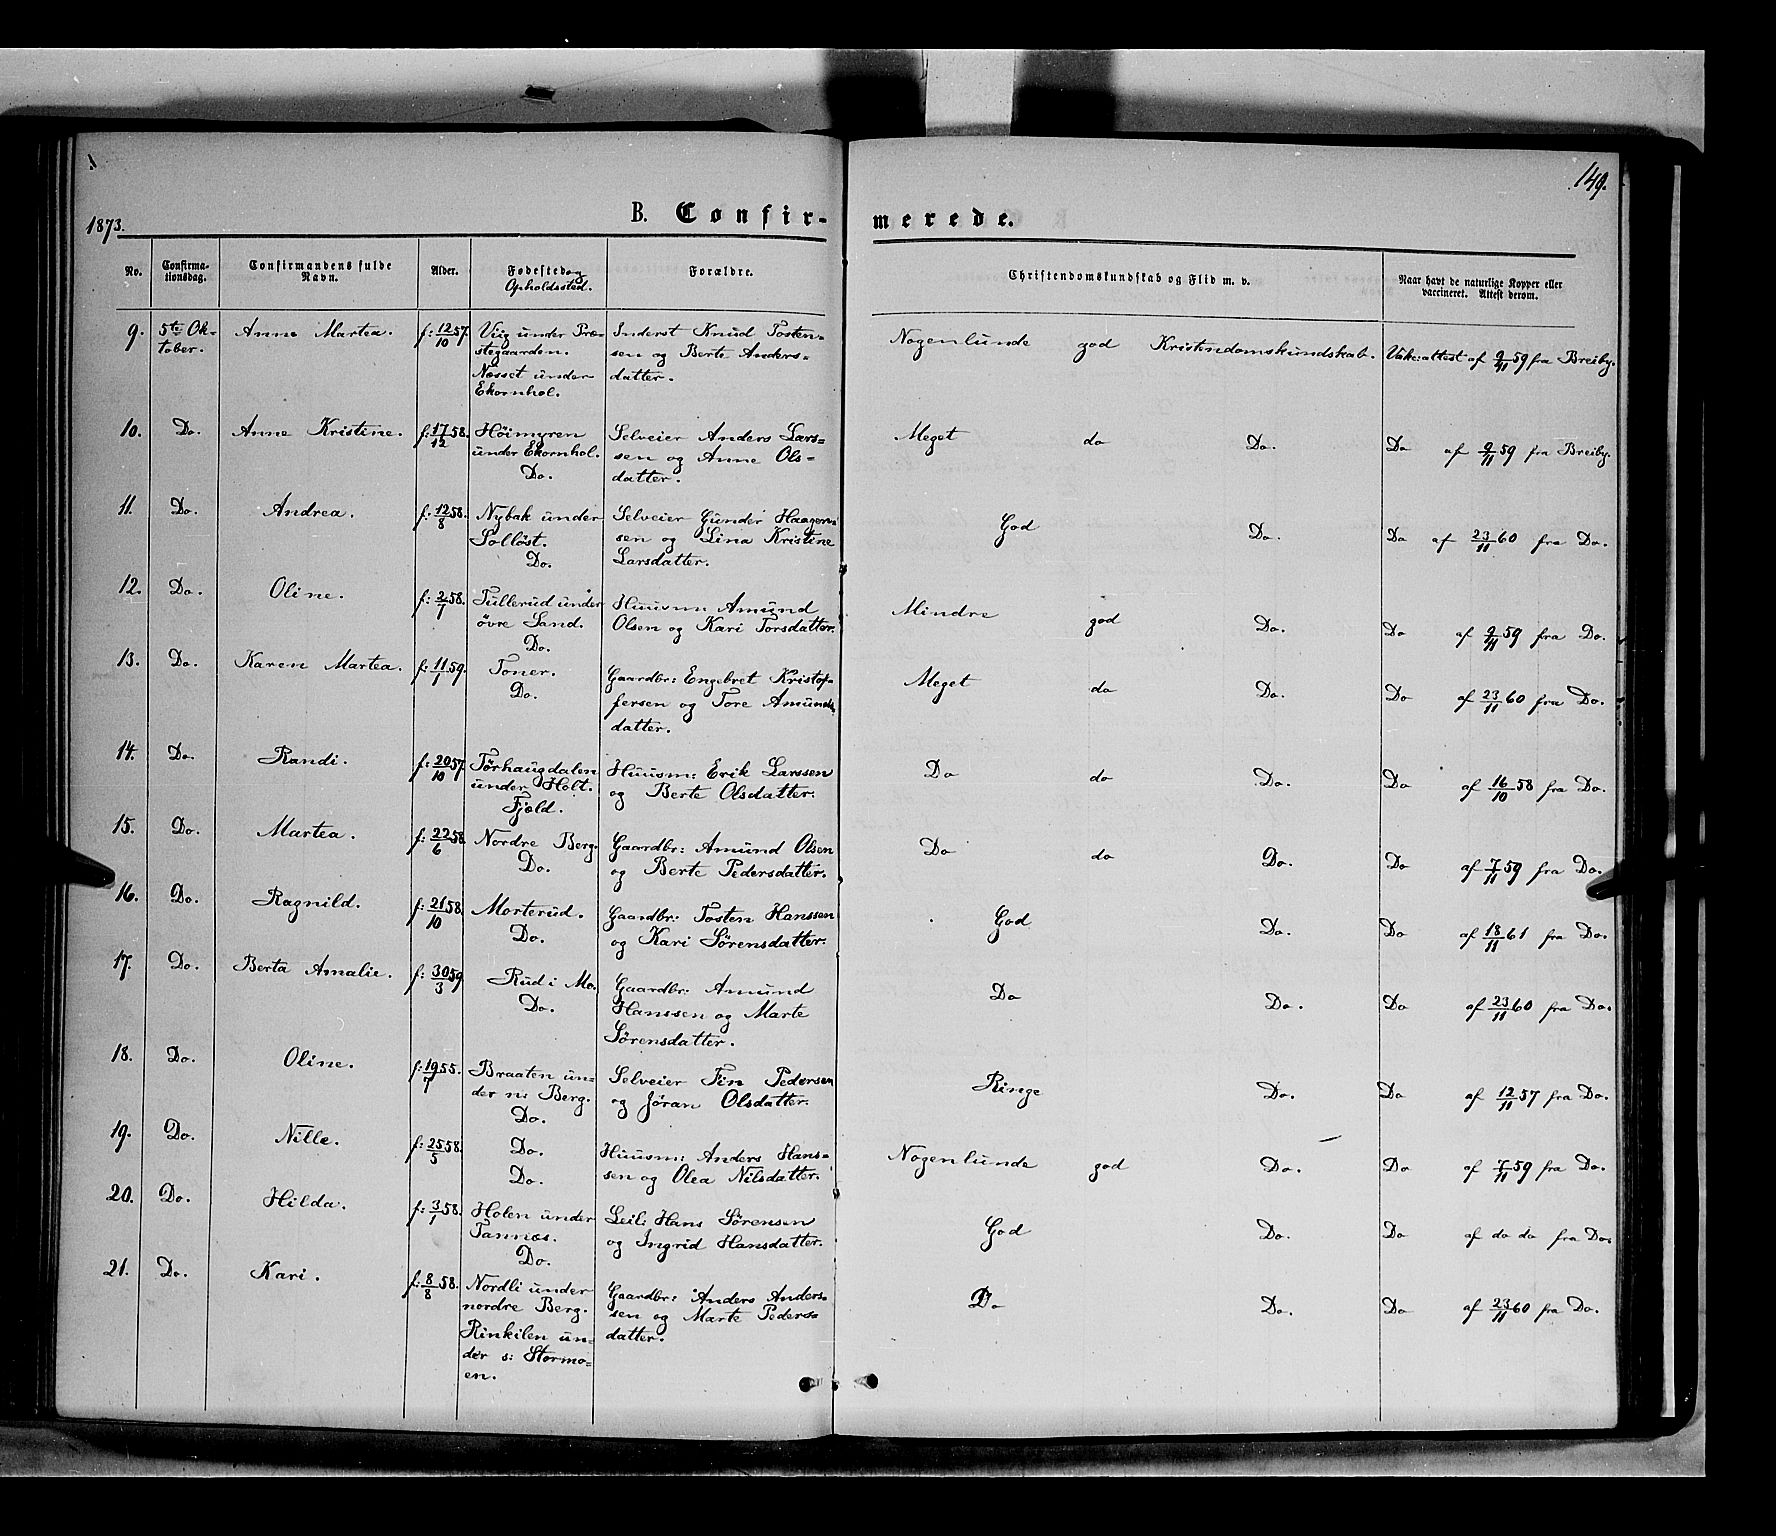 149.
1873.
B. Confir-merede.
No. Confirma-tionsdag. Confirmandens fulde Navn. Alder. Fødested og Opholdssted. Forældre. Christendomskundskab og Flid m. v. Naar havt de naturlige Kopper eller vaccineret. Attest derom.
9. 5te Ok- Anne Martea. f: 12/10 57. Viig under Præ- Inderst Knud Tosten- Nogenlunde god Kristendomskundskab. Vakc: attest af 9/11 59 fra Breiby.
tober. stegaarden. sen og Berte Anders-
Næsset under datter.
Ekornhol.
10. Do. Anne Kristine. f: 17/12 58. Höimyren Selveier Anders Lars- Meget do Do. Do af 9/11 59 fra Breiby.
under Ekornhol. sen og Anne Ols-
Do. datter.
11. Do. Andrea. f: 12/8 58. Nybak under Selveier Gunder Haagen- God Do. Do af 23/11 60 fra Do.
Solløst. sen og Lina Kristine
Do. Larsdatter.
12. Do. Oline. f: 2/1 58. Tullerud under Huusm: Amund Mindre god Do. Do af 9/11 59 fra Do.
övre Sand. Olsen og Kari Torsdatter.
Do.
13. Do. Karen Martea. f: 11/1 59. Toner. Gaardbr: Engebret Kristof- Meget do Do. Do af 23/11 60 fra Do.
Do. fersen og Tore Amunds
datter.
14. Do. Randi. f: 20/10 57. Törhaugdalen Huusm: Erik Larssen Do do Do. Do af 16/10 58 fra Do.
under Holt. og Berte Olsdatter.
Fjæld.
15. Do. Martea. f: 22/6 58. Nordre Berg. Gaardbr: Amund Olsen Do do Do. Do af 7/11 59 fra Do.
Do. og Berte Pedersdatter.
16. Do. Ragnild. f: 21/10 58. Morterud. Gaardbr: Tosten Hanssen God Do. Do af 18/11 61 fra Do.
Do. og Kari Sörensdatter.
17. Do. Berta Amalie. f: 30/3 59. Rud i Mo. Gaardbr: Amund Do Do. Do af 23/11 60 fra Do.
Do. Hanssen og Marte
Sörensdatter.
18. Do. Oline. f: 19/7 55. Braaten un- Selveier Fin Pedersen Ringe Do. Do af 12/11 57 fra Do.
der n: Berg. og Jöran Olsdatter.
Do.
19. Do. Nille. f: 25/5 58. Do. Huusm: Anders Hans- Nogenlunde god Do. Do af 7/11 59 fra Do.
Do. sen og Olea Nilsdatter.
20. Do. Hilda. f: 3/1 58. Holen under Leil: Hans Sörensen God Do. Do af do do fra Do.
Tannæs. og Ingrid Hansdatter.
Do.
21. Do. Kari. f: 8/8 58. Nordli under Gaardbr: Anders Anders- Do Do. Do af 23/11 60 fra Do.
nordre Berg. sen og Marte Peders-
Rinkilen un- datter.
der s: Stormo-
en.